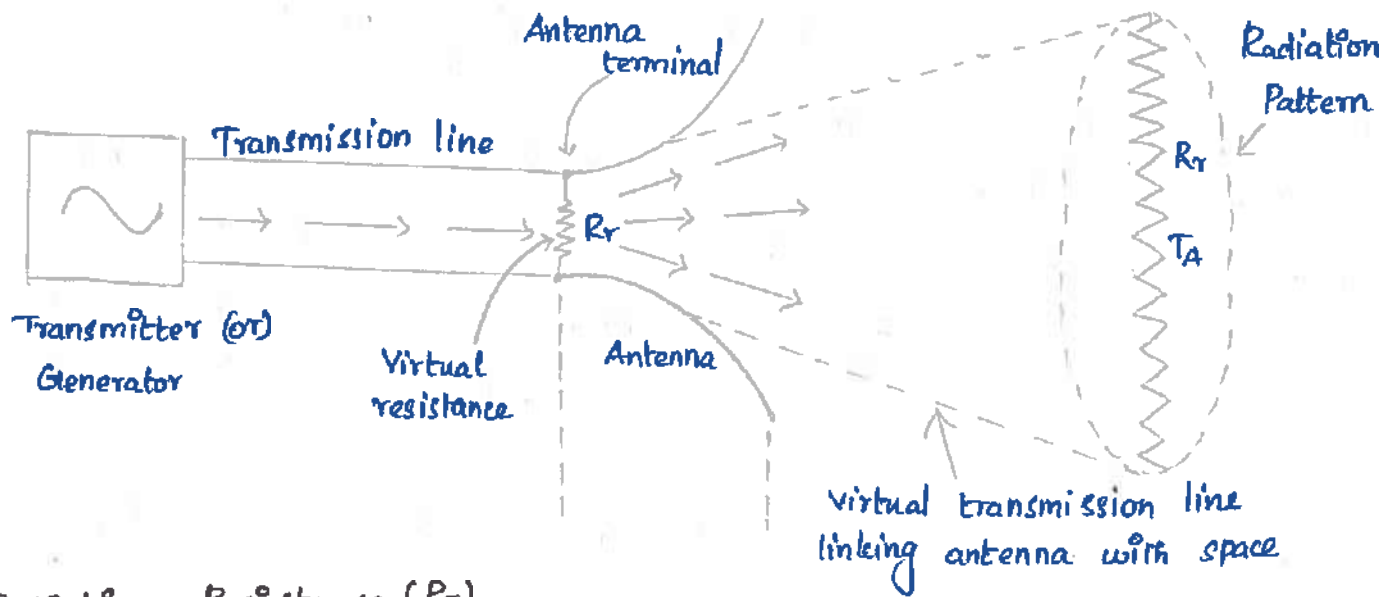 Antenna
terminal
Radiation
Pattern
Transmission line
Rr
Rr
TA
Transmitter (or)
Generator
Virtual
resistance
Antenna
Virtual transmission line
linking antenna with space
Resistance (Rr)